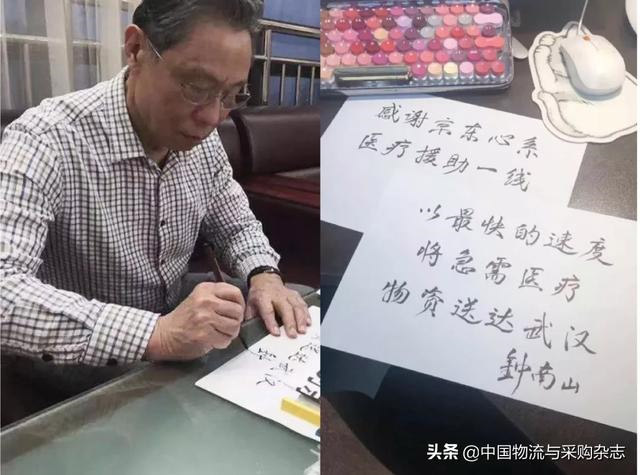 感谢京东心系
医疗援助一线
以最快的速度
将急需医疗
物资送达武汉
钟南山
头条@中国物流与采购杂志